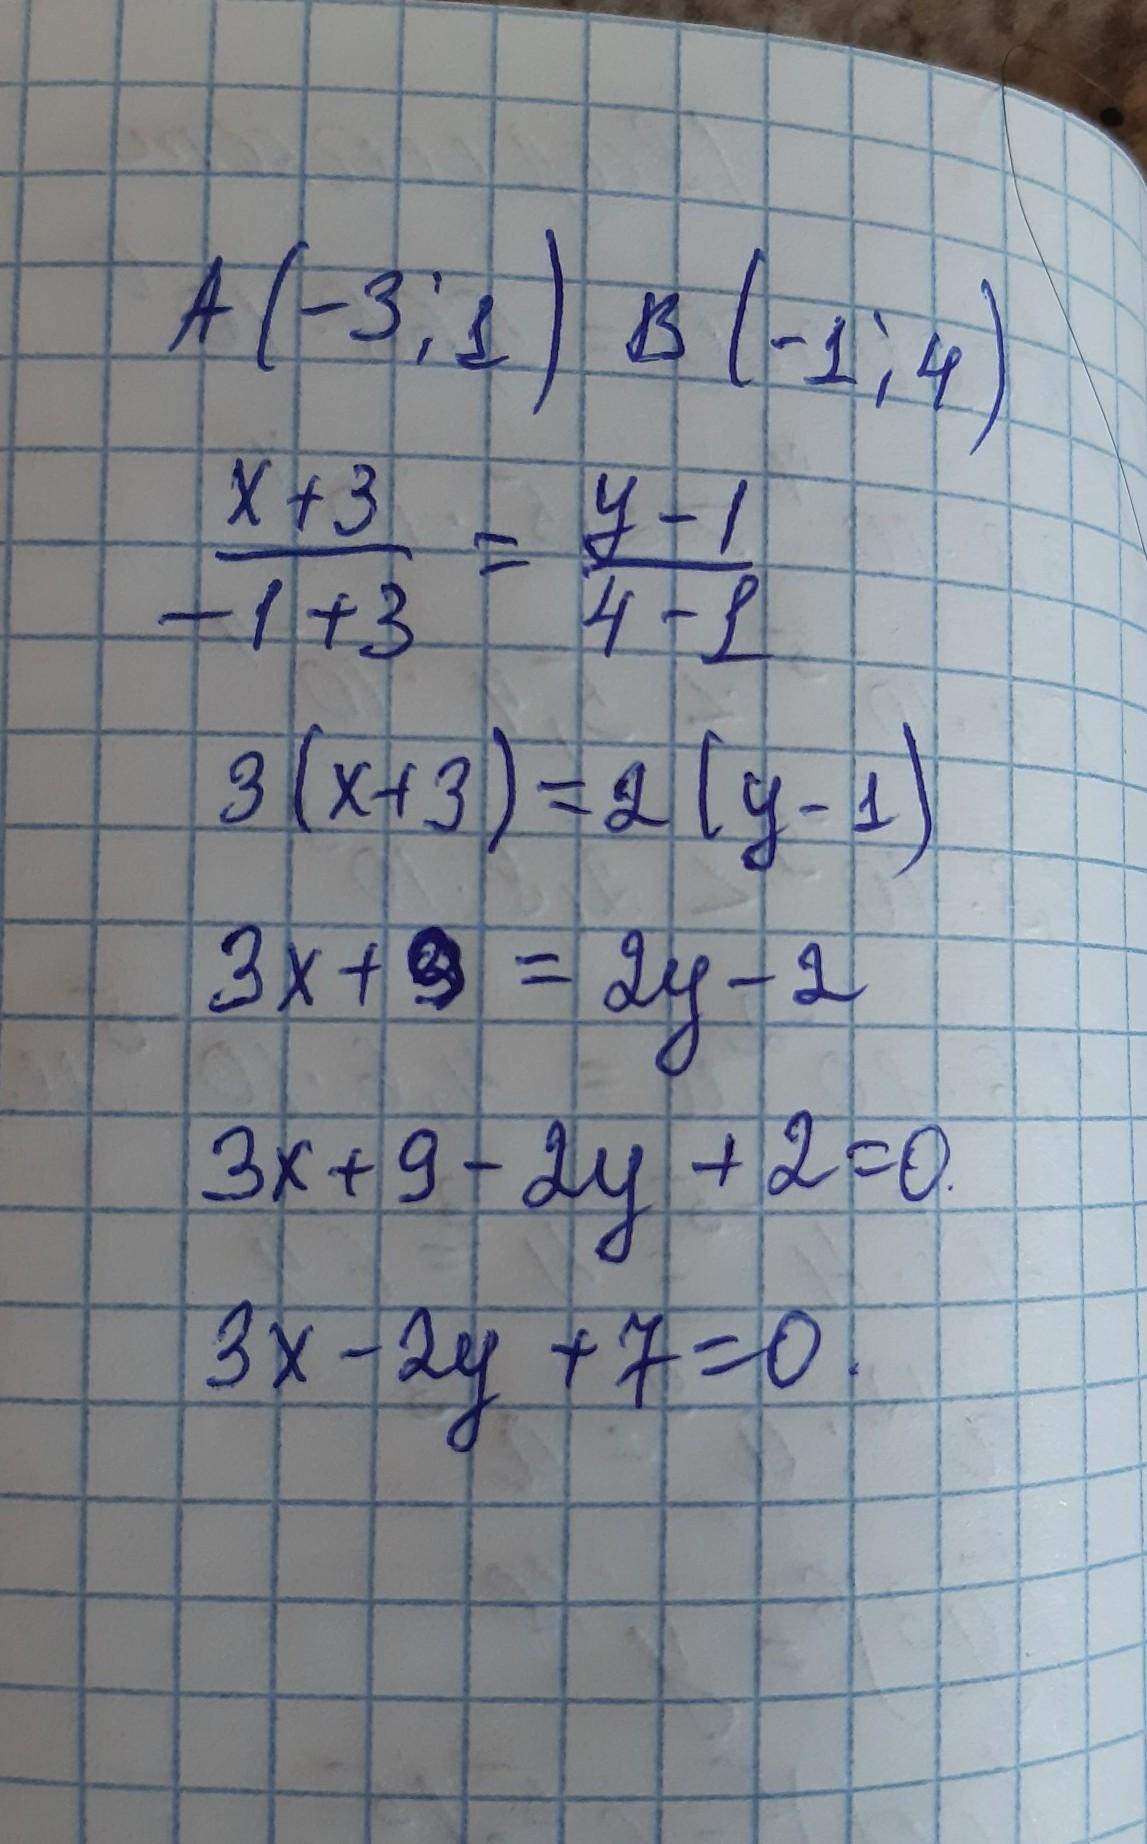 A(-3;1) B(-1;4)
x+3 / -1+3 = y-1 / 4-1
3(x+3)=2(y-1)
3x+9=2y-2
3x+9-2y+2=0.
3x-2y+7=0.